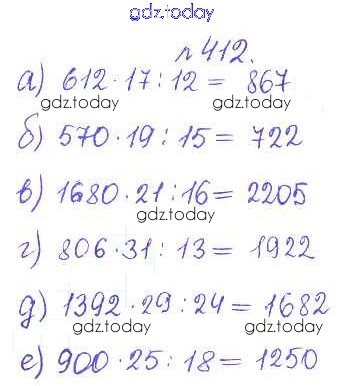 gdz.today
n 412.
а) 612 · 17 : 12 = 867
gdz.today gdz.today
б) 570 · 19 : 15 = 722
в) 1680 · 21 : 16 = 2205
gdz.today
г) 806 · 31 : 13 = 1922
д) 1392 · 29 : 24 = 1682
gdz.today gdz.today
е) 900 · 25 : 18 = 1250